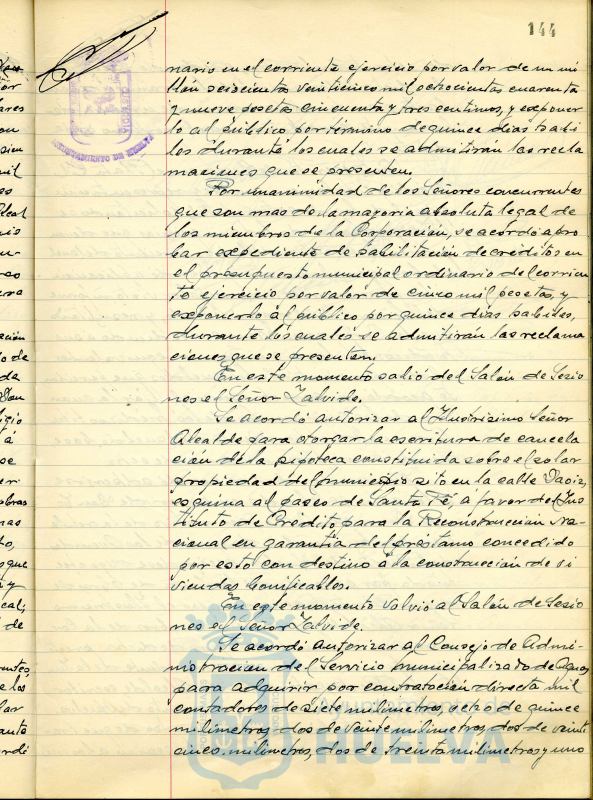 144
nario en el corriente ejercicio por valor de un mi
llón seiscientas veinticinco mil ochocientas cuarenta
y nueve pesetas cincuenta y tres centimos, y exponer
lo al público por término de quince dias habi
les durante los cuales se admitirán las recla
maciones que se presenten.
Por unanimidad de los Señores concurrentes
que son mas de la mayoria absoluta legal de
los miembros de la Corporación, se acordó apro
bar expediente de habilitación de créditos en
el presupuesto municipal ordinario del corrien
te ejercicio por valor de cinco mil pesetas, y
exponerlo al público por quince dias habiles,
durante los cuales se admitirán las reclama
ciones que se presenten.
En este momento salió del Salón de Sesio
nes el Señor Zalvide.
Se acordó autorizar al Ilustrísimo Señor
Alcalde para otorgar la escritura de cancela
ción de la hipoteca constituida sobre el solar
propiedad del municipio sito en la calle Daoiz,
esquina al paseo de Santa Fé, a favor del Ins
tituto de Crédito para la Reconstrucción Na-
cional en garantia del préstamo concedido
por esto con destino a la construcción de vi
viendas bonificables.
En este momento volvió al Salón de Sesio
nes el Señor Zalvide.
Se acordó autorizar al Consejo de Admi-
nistración del Servicio municipalizado de Aguas
para adquirir por contratación directa mil
contadores de siete milimetros, ocho de quince
milimetros, dos de veinte milimetros, dos de veinti
cinco milimetros, dos de treinta milimetros y uno
AYUNTAMIENTO DE HUELVA
HUELVA